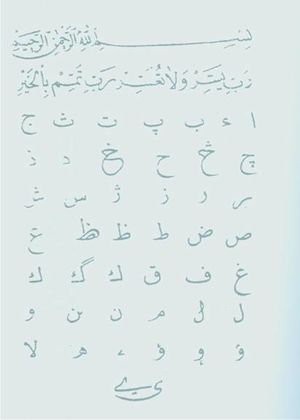 بسم الله الرحمن الرحيم
رب يسر ولا تعسر رب تمم بالخير
ا ء ب پ ت ث ج
چ څ ح خ د ذ
ر ز ژ س ش
ص ض ط ظ ع
غ ف ق ك گ ك
ل ل م ن و
ؤ ء ه لا
ي